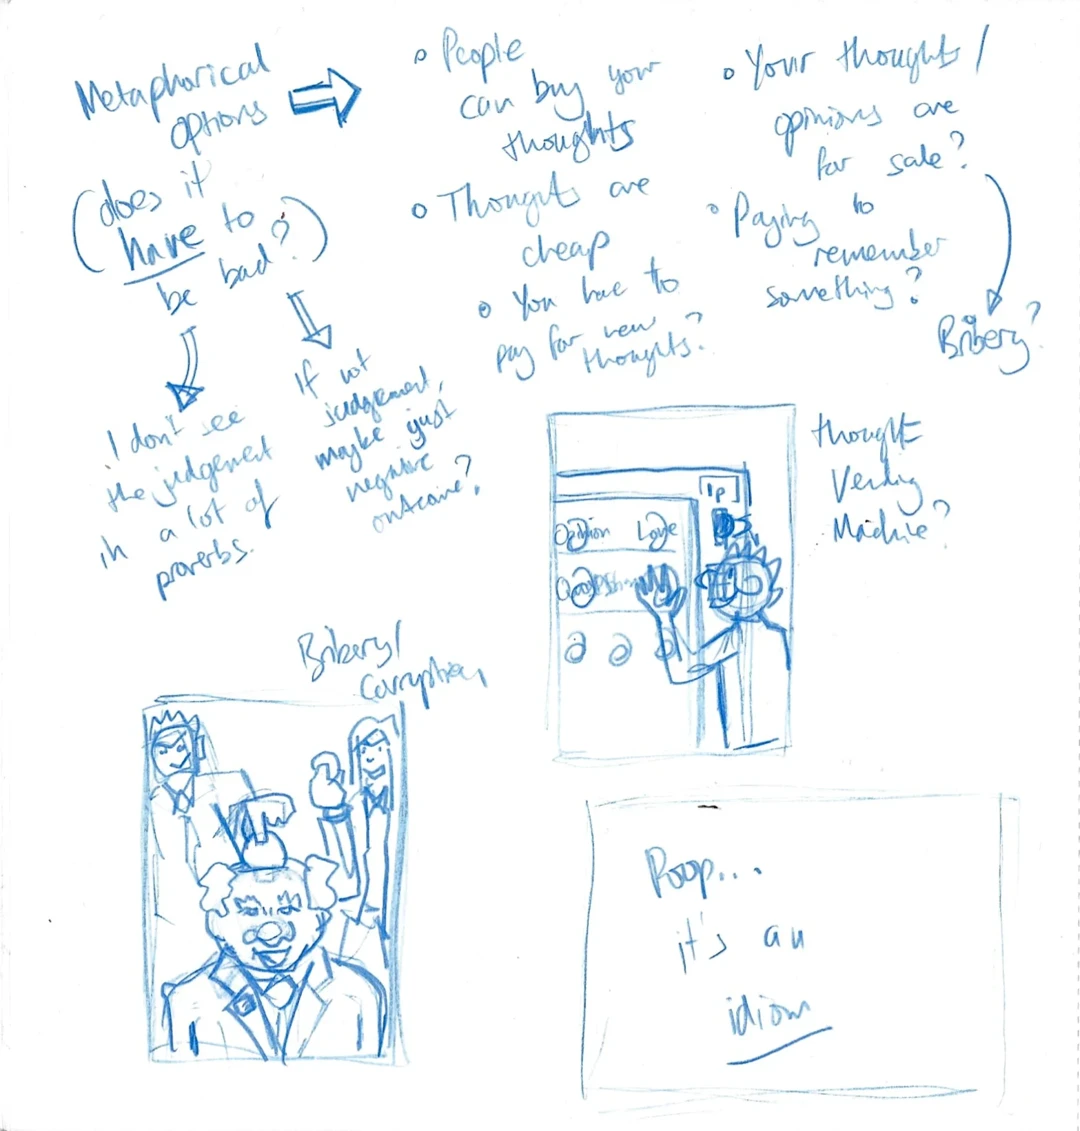 Metaphorical
options
(does it
have to
be bad?)
I don't see
the judgement
in a lot of
proverbs.
If not
judgement,
maybe just
negative
outcome?
People
can buy your
thoughts
Thoughts are
cheap
You have to
pay for new
thoughts?
Your thoughts/
opinions are
for sale?
Paying to
remember
something?
Bribery?
thought
Vending
Machine?
1p
Opinion Love
Bribery/
Corruption
Poop...
it's an
idiom